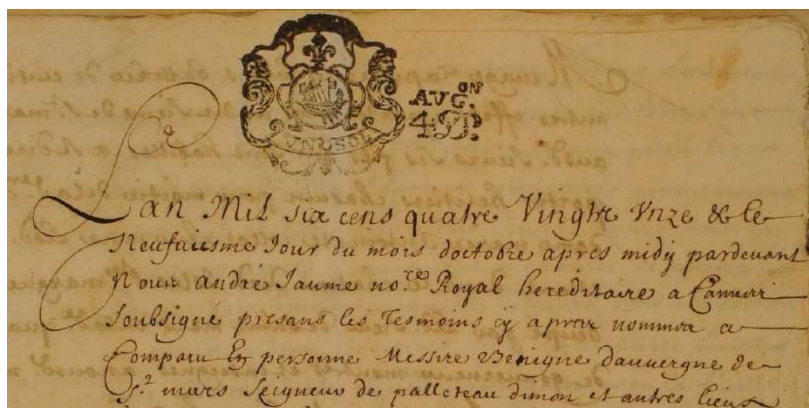 VN SOL
AVG.ON
4 D.
Lan Mil six cens quatre Vingtz Vnze & le
Neufuiesme Jour du mois doctobre apres midy pardeuant
Nous André Jaume no.re Royal hereditaire a
soubsigné presans les Tesmoins cy apres nommes a
Comparu En personne Messire Benigne dauuergne de
S.t mars Seigneur de palleteau dimon et autres lieux